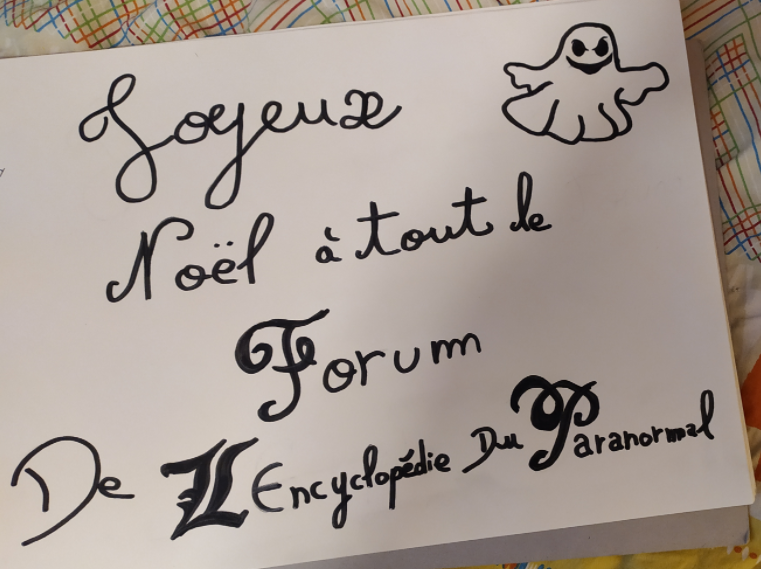 Joyeux
Noël à tout le
Forum
De L'Encyclopédie Du Paranormal